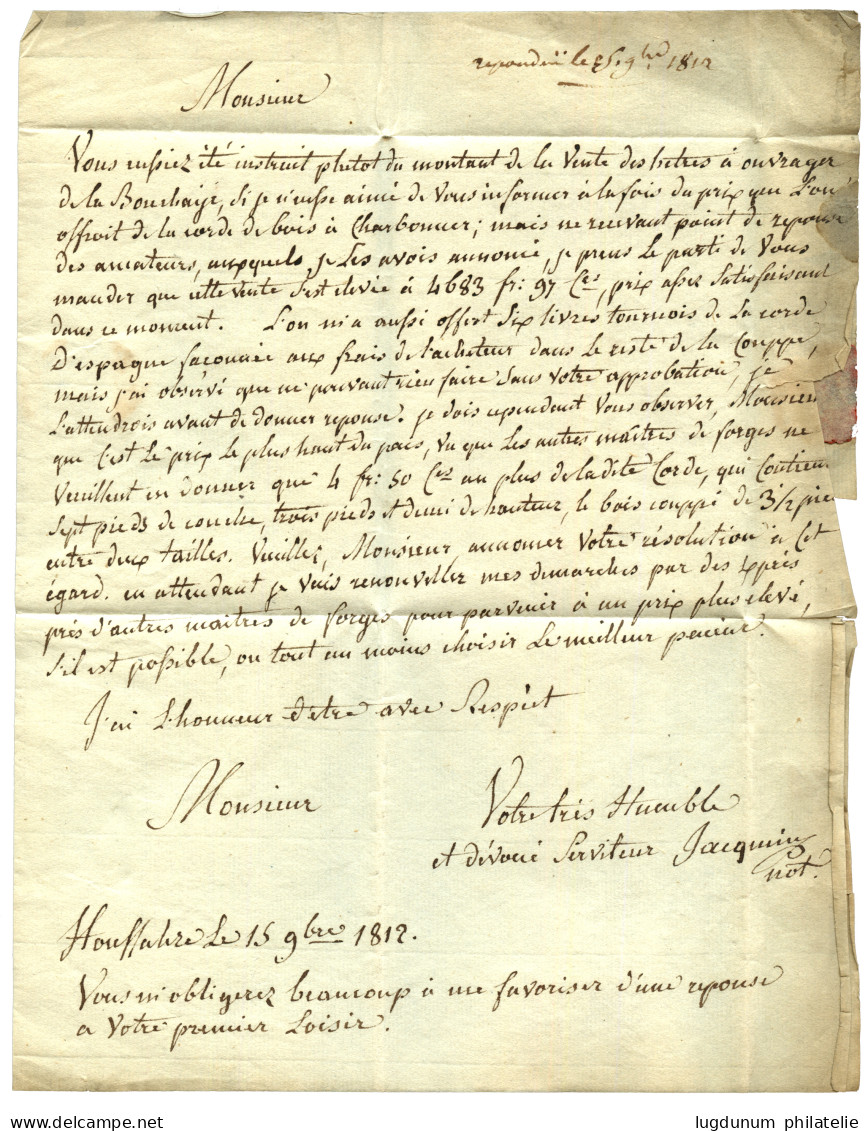 repondu le 25. 9bre 1812
Monsieur
Vous eussiez été instruit plutot du montant de la Vente des hetres à ouvrager
de la Bouchaije, si je n'eusse aimé de Vous informer à la fois du prix que l'on
offroit de la corde de bois à Charbonner; mais ne recevant point de reponse
des amateurs, auxquels je les avois annoncé, je prens le parti de Vous
mander que cette vente s'est elevée à 4683 fr: 97 Ces, prix assez satisfaisant
dans ce moment. L'on m'a aussi offert six livres tournois de la corde
d'espague façonnée aux frais de l'acheteur dans le reste de la Couppe,
mais j'ai observé que ne pouvant rien faire sans votre approbation, je
l'attendrois avant de donner reponse. je dois cependant Vous observer, Monsieur
que c'est le prix le plus haut du païs, vu que les autres maîtres de forges ne
Veuillent en donner que 4 fr: 50 Ces au plus de ladite Corde, qui contient
sept pieds de couche, trois pieds et demi de hauteur, le bois couppé de 3 1/2 pieds
entre deux tailles. Veuillez, Monsieur, annoncer Votre résolution à cet
égard. en attendant je vais renouveller mes demarches par des exprès
près d'autres maîtres de forges pour parvenir à un prix plus elevé,
s'il est possible, ou tout au moins choisir le meilleur paieur.
J'ai l'honneur d'etre avec Respect
Monsieur
Votre très Humble
et dévoué Serviteur Jacquin
not.
Houffalize Le 15 9bre 1812.
Vous m'obligerez beaucoup à me favoriser d'une reponse
a Votre premier Loisir.
lugdunum philatelie